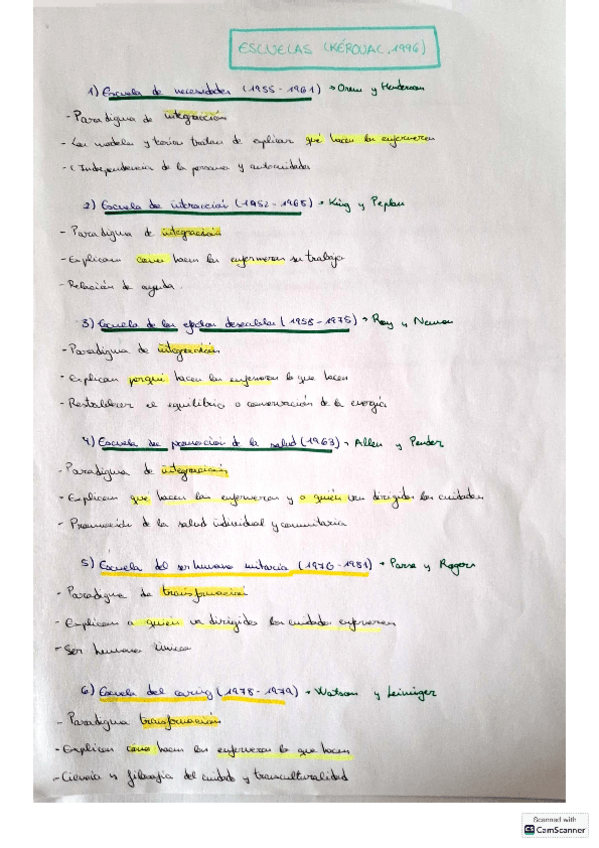 ESCUELAS (KÉROUAC, 1996)
1) Escuela de necesidades (1955 - 1961) → Orem y Henderson
- Paradigma de integración
- Los modelos y teorías tratan de explicar qué hacen las enfermeras
- Independencia de la persona y autocuidados
2) Escuela de interacción (1952 - 1968) → King y Peplau
- Paradigma de integración
- Explican como hacen las enfermeras su trabajo
- Relación de ayuda.
3) Escuela de los efectos deseables (1958 - 1975) → Roy y Neuman
- Paradigma de integración
- Explican porqué hacen las enfermeras lo que hacen
- Restablecer el equilibrio o conservación de la energía
4) Escuela de promoción de la salud (1963) → Allen y Pender
- Paradigma de integración
- Explican que hacen las enfermeras y a quién van dirigidos los cuidados
- Promoción de la salud individual y comunitaria
5) Escuela del ser humano unitario (1970 - 1981) → Parse y Rogers
- Paradigma de transformación
- Explican a quién va dirigidos los cuidados enfermeros
- Ser humano único
6) Escuela del caring (1978 - 1979) → Watson y Leininger
- Paradigma transformación
- Explican como hacen las enfermeras lo que hacen
- Ciencia y filosofía del cuidado y transculturalidad
Scanned with
CS CamScanner